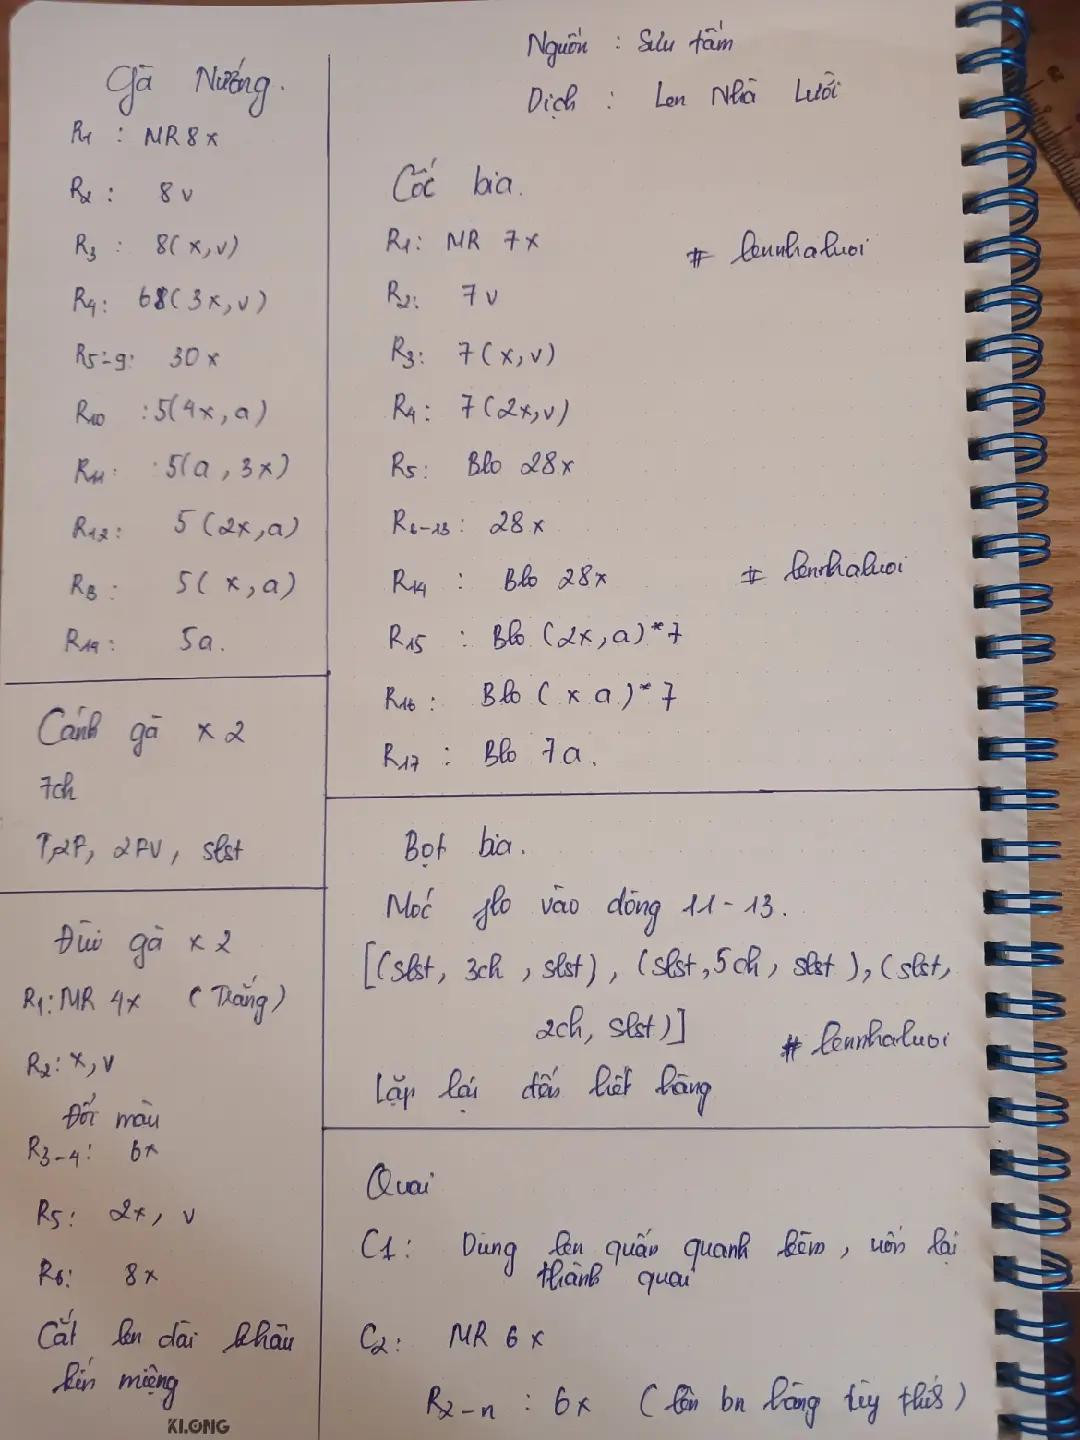 Gà Nướng.
R1 : MR 8x
R2 : 8v
R3 : 8(x,v)
R4: 68(3x,v)
R5-9: 30x
R10 : 5(4x, a)
R11 : 5(a, 3x)
R12: 5(2x,a)
R13 : 5(x,a)
R14 : 5a.
Cánh gà x 2
7ch
T,2F, 2FV, slst
Đùi gà x 2
R1: MR 4x (Trắng)
R2: x, v
Đổi màu
R3-4: 6x
R5: 2x, v
R6: 8x
Cắt len dài khâu
kín miệng
KLONG
Nguồn : Sưu tầm
Dịch : Len Nhà Lười
Cốc bia.
R1: MR 7x
# lennhaluoi
R2: 7v
R3: 7(x,v)
R4: 7(2x,v)
R5: Blo 28x
R6-13: 28x
R14 : Blo 28x
# lennhaluoi
R15 : Blo (2x, a)*7
R16 : Blo (x a)*7
R17 : Blo 7a.
Bọt bia.
Móc flo vào dòng 11-13.
[(slst, 3ch, slst), (slst, 5ch, slst), (slst,
2ch, slst)]
# lennhaluoi
Lặp lại đến hết hàng
Quai
C1: Dùng len quấn quanh kẽm, uốn lại
thành quai
C2: MR 6x
R2-n : 6x (lên bn hàng tùy thích)